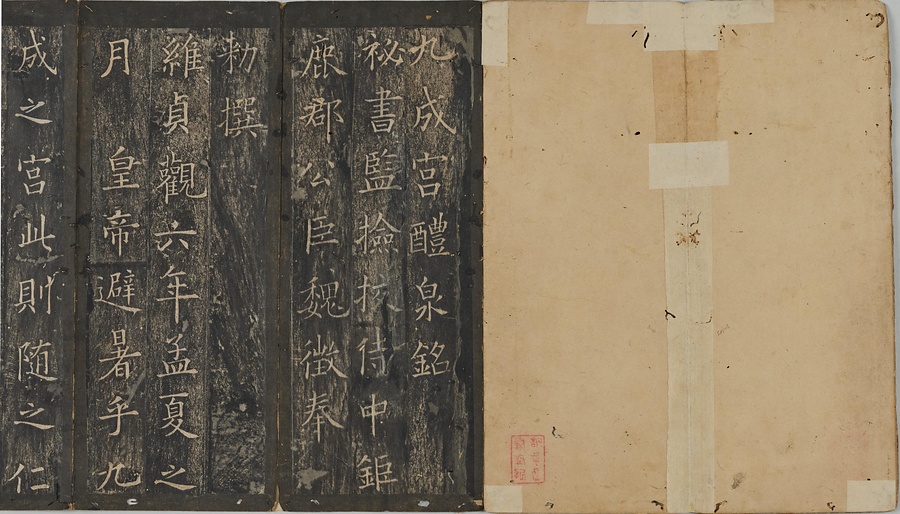 九成宮醴泉銘
祕書監撿挍侍中鉅
鹿郡公臣魏徵奉
勑撰
維貞觀六年孟夏之
月皇帝避暑乎九
成之宮此則隨之仁